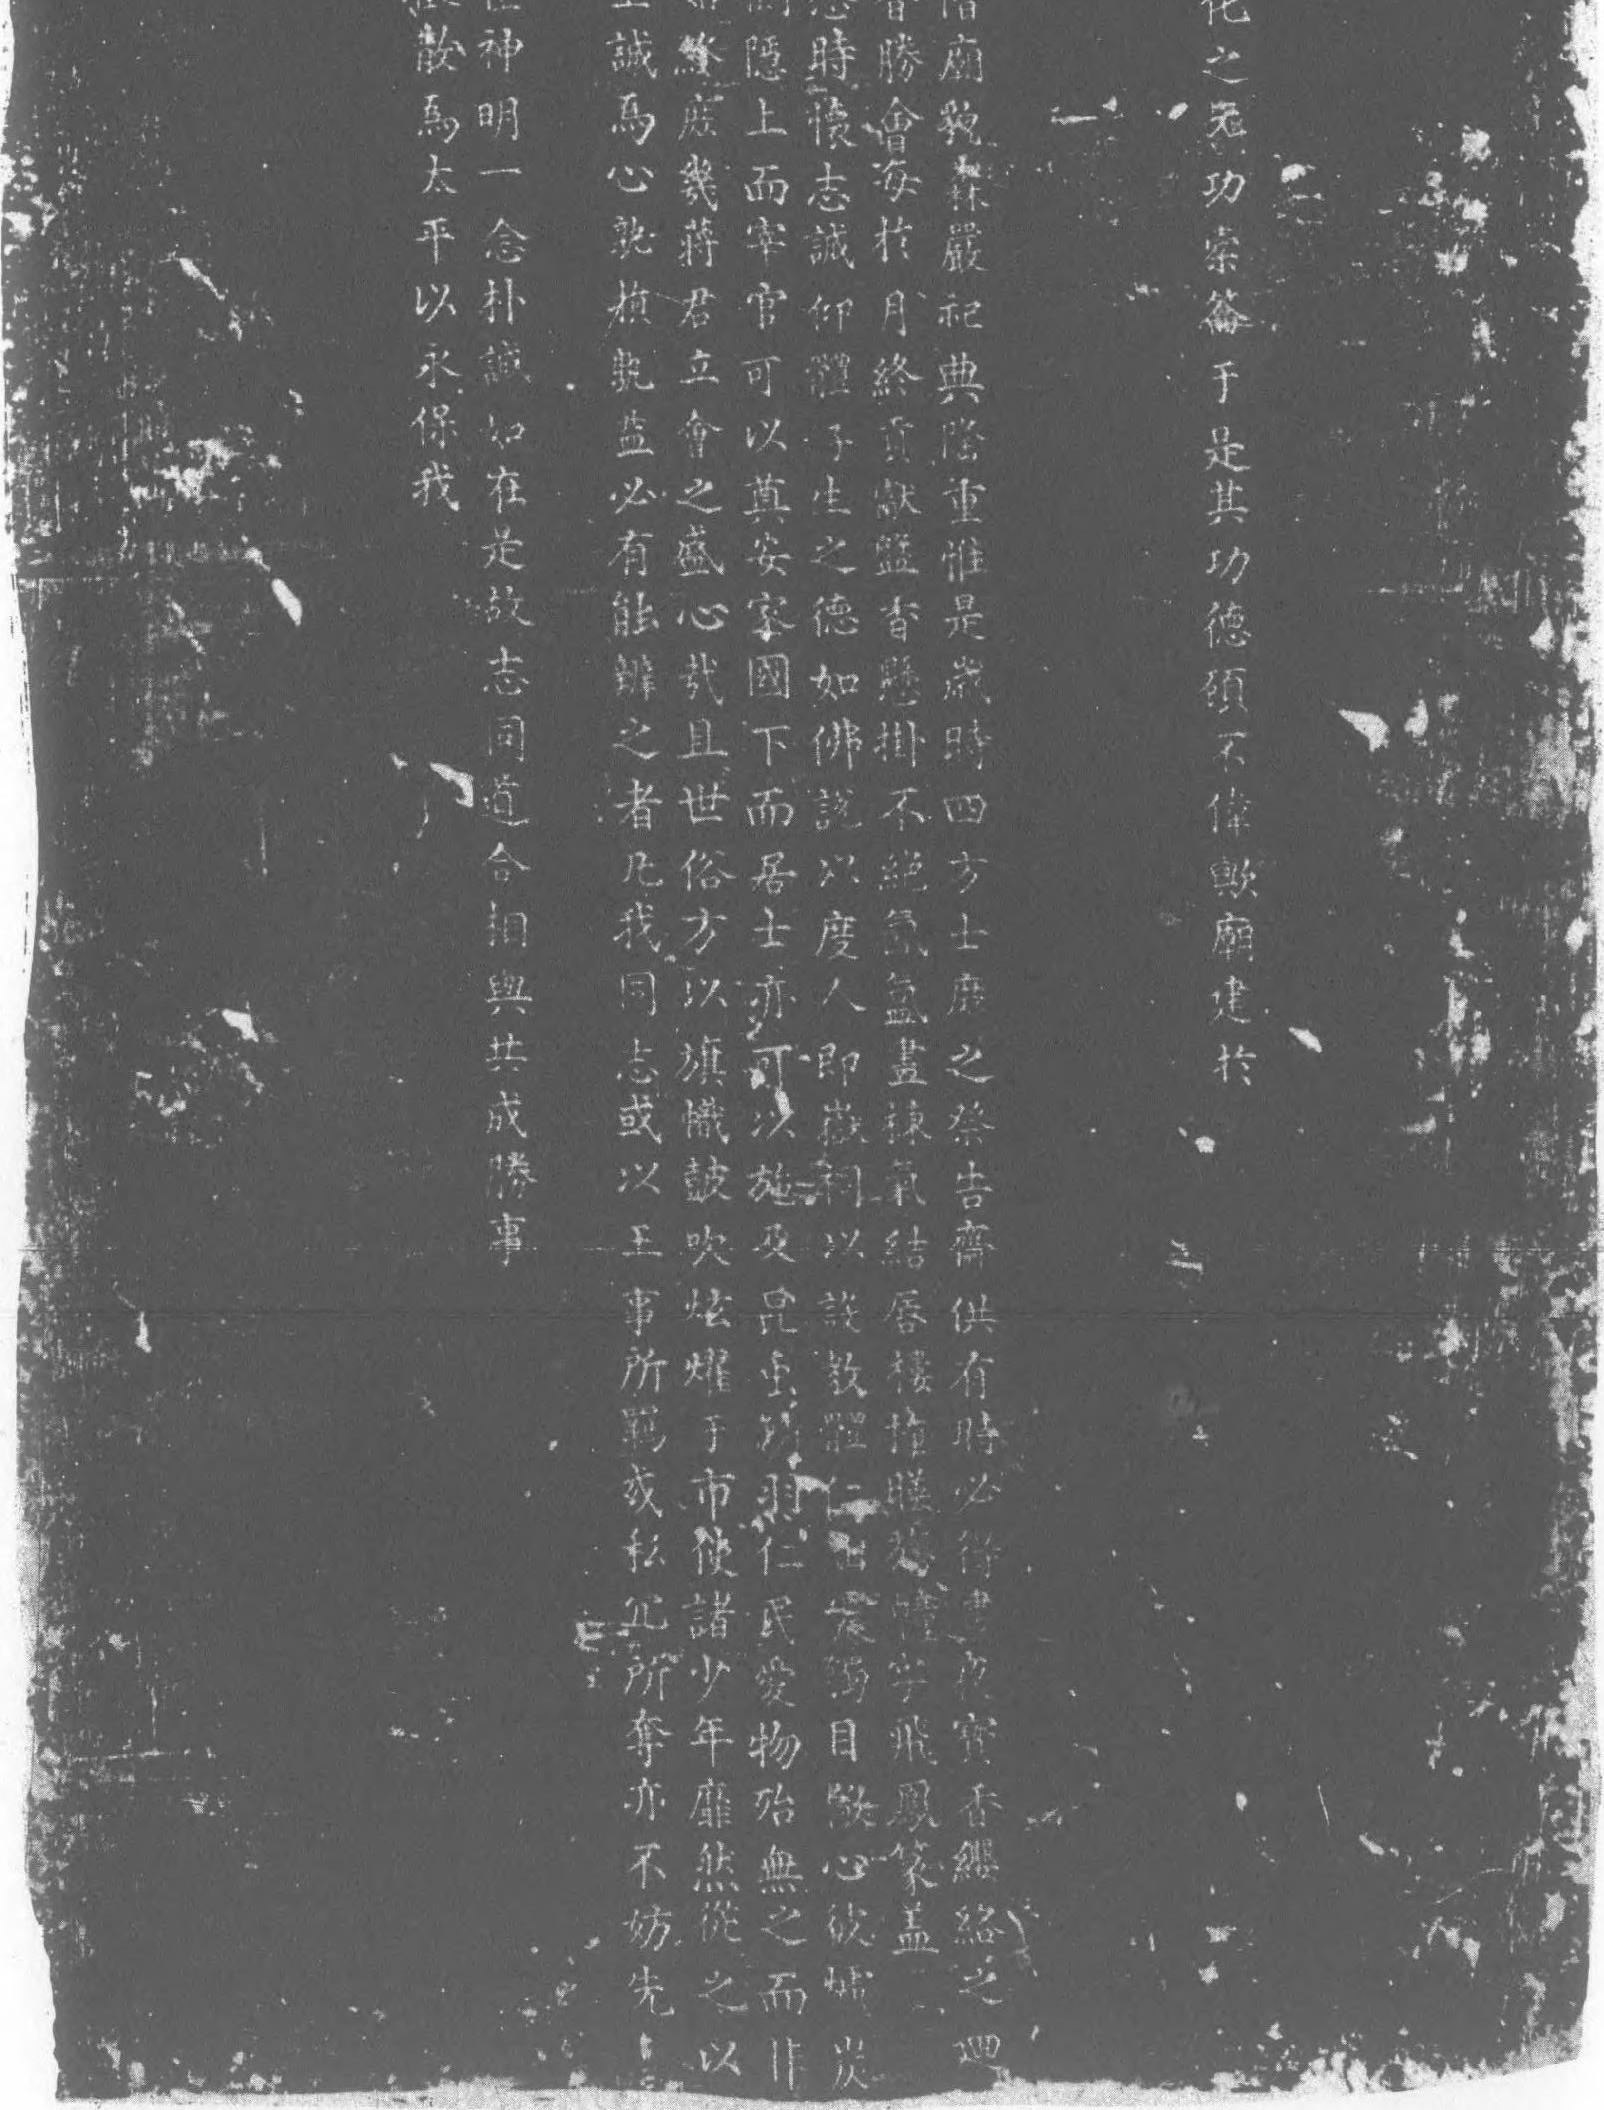 化之元功索籥于是其功德顧不偉歟廟建於
階廟貌森嚴祀典隆重惟是歲時四方士庶之祭告齋供有時必得晝夜寶香纓絡之迴
香勝會每於月終貢獻盤香懸掛不絕氤氳畫棟氣結唇樓 飛鳳篆盖
時懷志誠仰體子生之德如佛說以度人即嶽祠以設教體仁 目 心彼爐炭
隱上而宰官可以奠安家國下而居士亦可以施及昆虫 羽仁民愛物殆無之而非
庶幾蔣君立會之盛心哉且世俗方以旗幟鼓吹炫耀于市使諸少年靡然從之以
誠為心孰 孰益必有能辨之者凡我同志或以王事所羈或私冗所奪亦不妨先
神明一念朴誠如在是故志同道合相與共成勝事
歆為太平以永保我